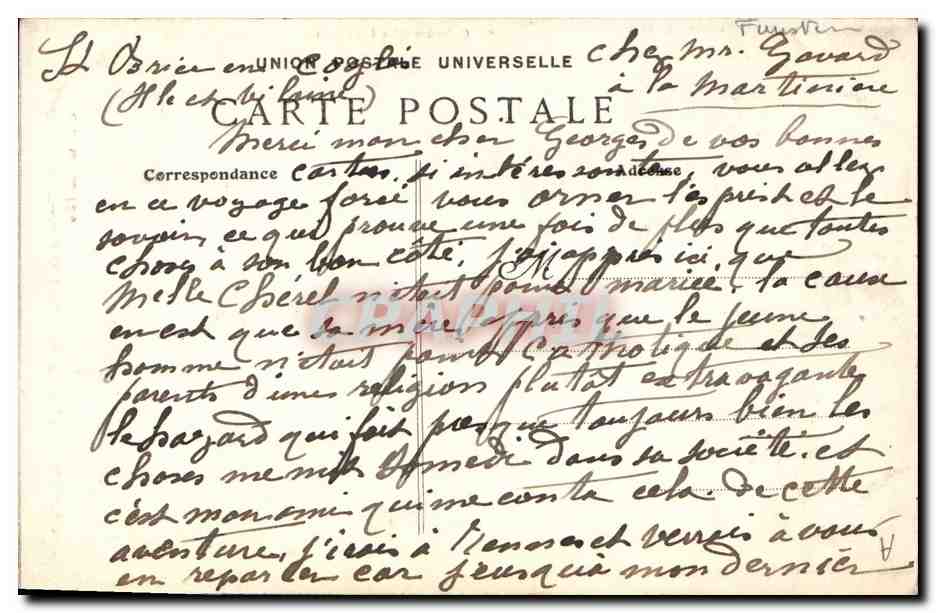 chez Mr. Gavard
St Brice en Cogles
UNION POSTALE UNIVERSELLE
à la Martinière
(Ille et Vilaine)
CARTE POSTALE
Merci mon cher Georges de vos bonnes
Correspondance
Adresse
cartes, si intéressantes, vous allez
en ce voyage forcé vous orner l'esprit et le
savoir, ce qui prouve une fois de plus que toutes
choses à son bon côté. J'ai appris ici, que
M
Melle Chérel n'était point mariée, la cause
en est que sa mère apprès que le jeune
homme n'était point catholique et ses
parents d'une religion plutôt extravagante
le hazard qui fait presque toujours bien les
choses me mit Samedi dans sa société. et
c'est mon ami qui me conta cela. de cette
aventure, j'irais à Rennes et verrais à vous
en reparler car jeusquia mon dernier
CPAPHIL